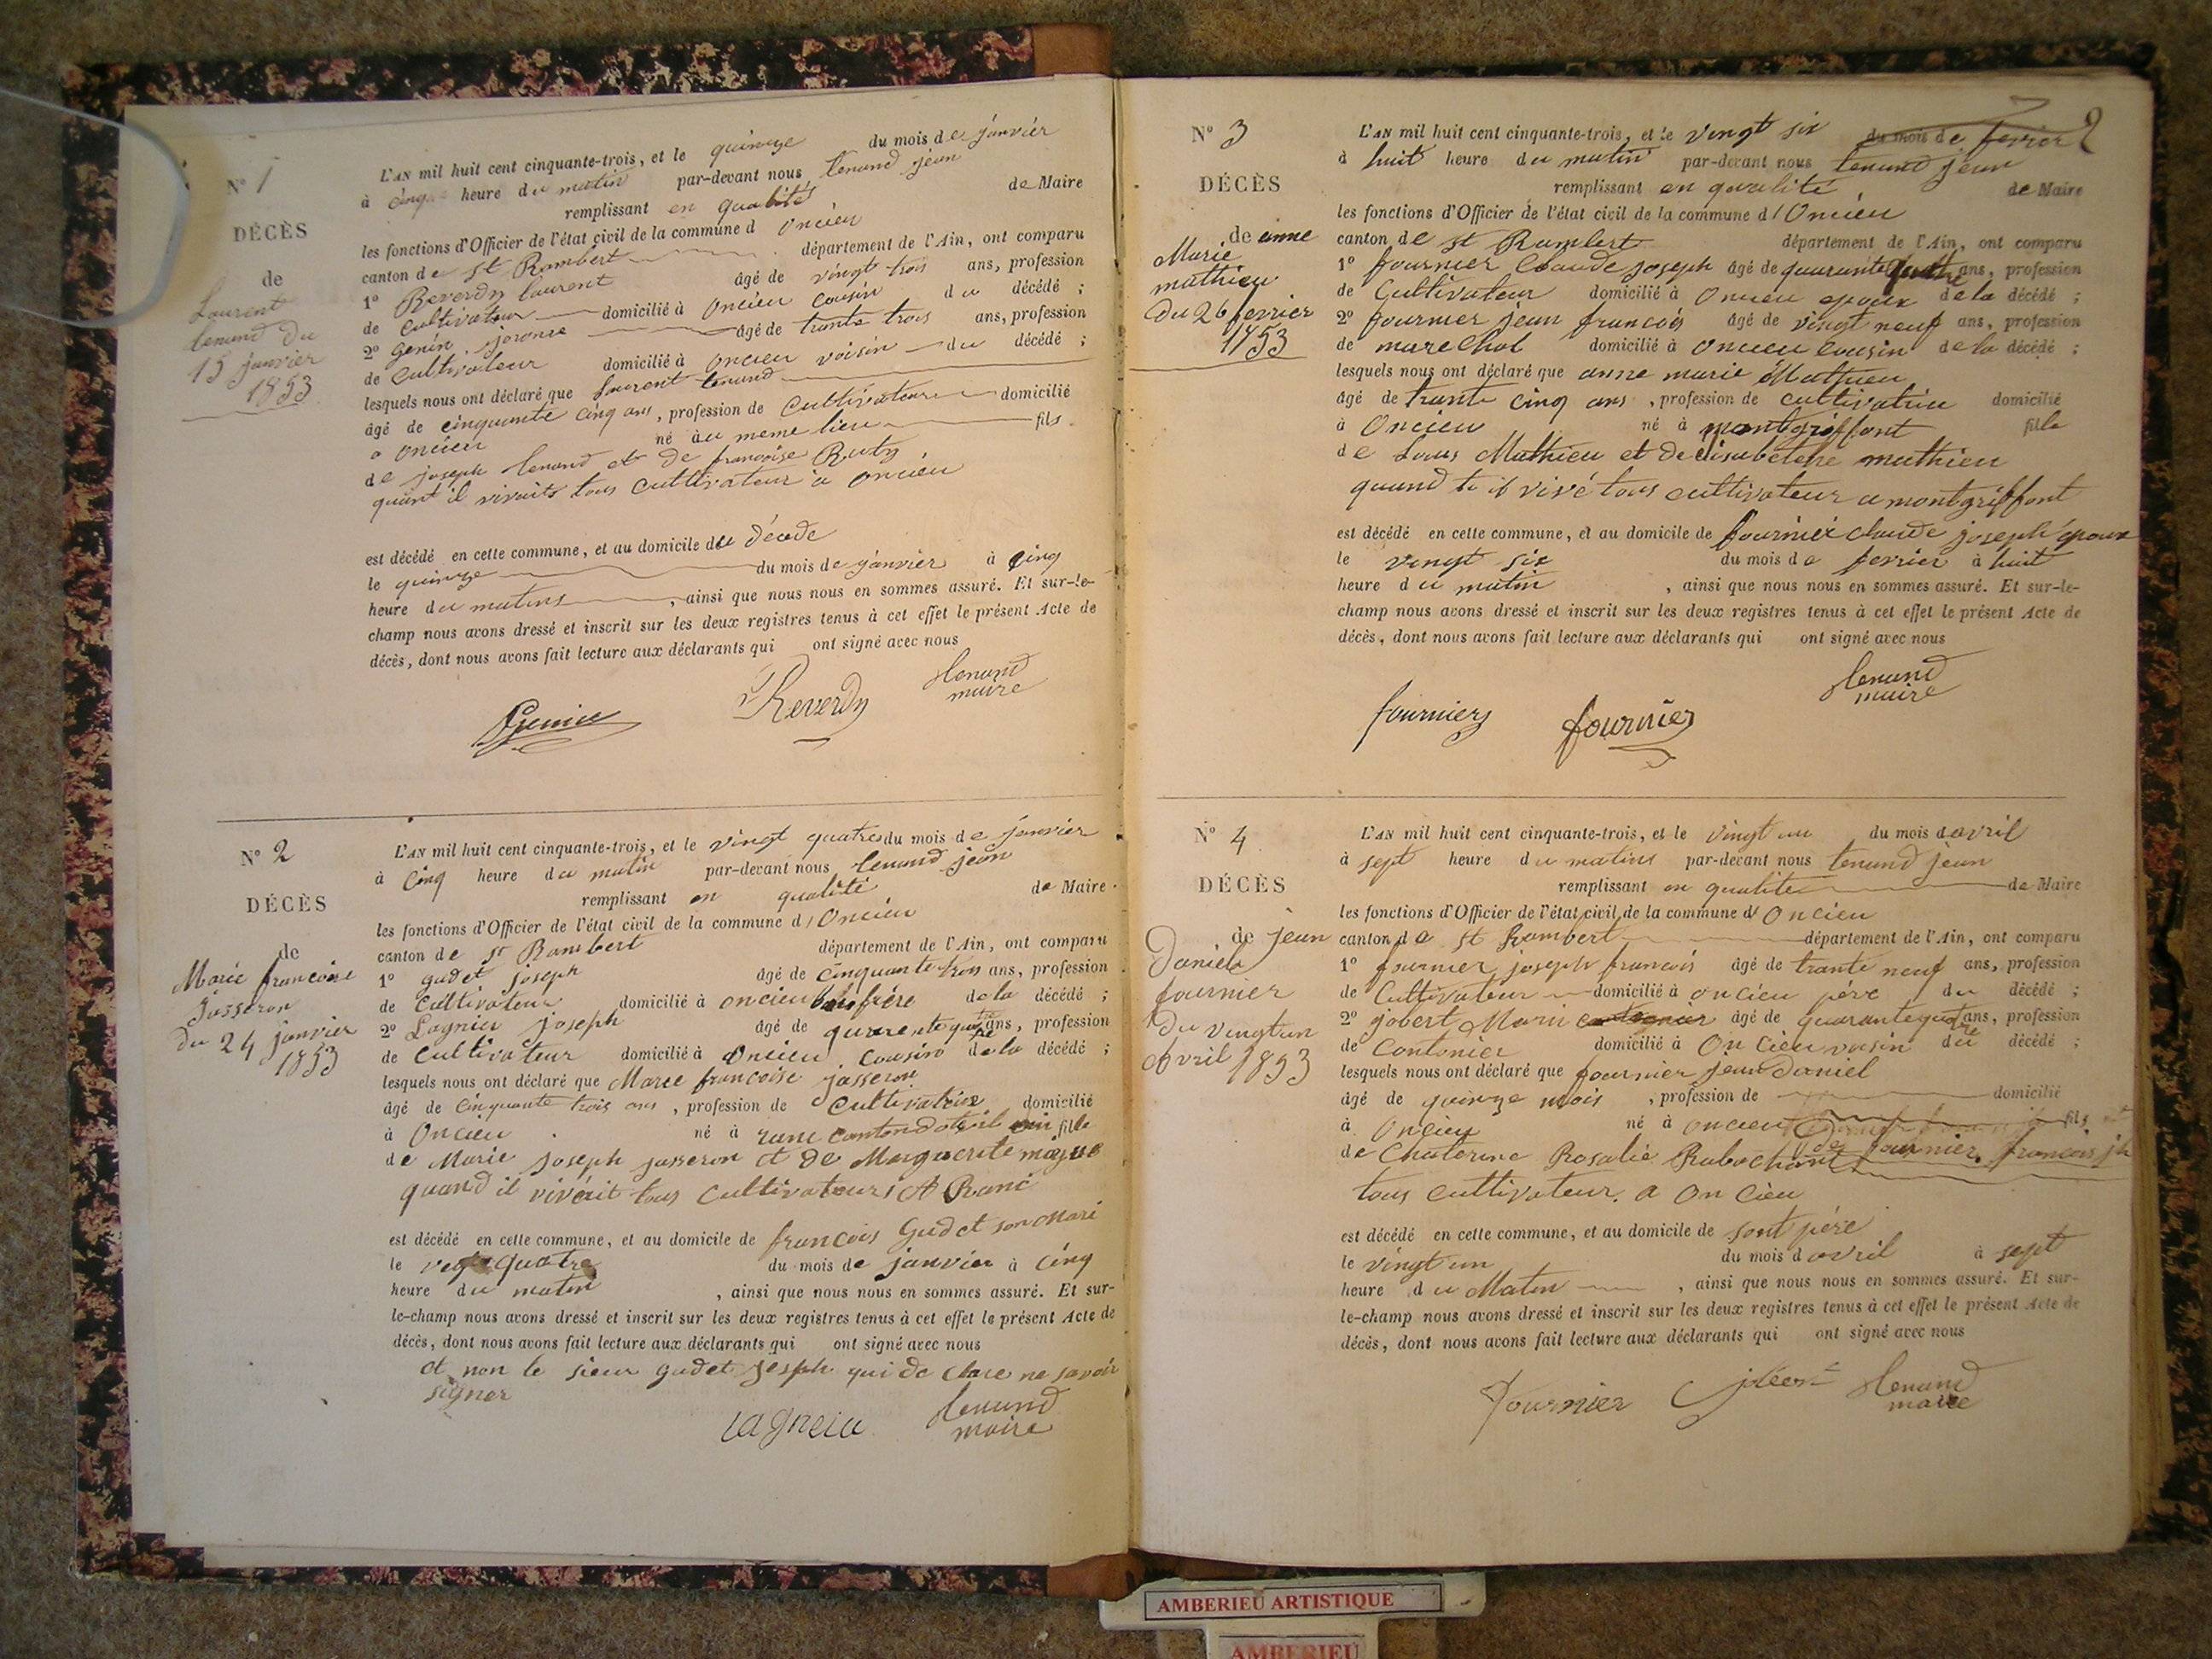 N° 1
DÉCÈS
de
Laurent
tenand du
15 janvier
1853
L'AN mil huit cent cinquante-trois, et le quinze du mois de janvier
à cinq heure du matin par-devant nous tenand jean
remplissant en qualités de Maire
les fonctions d'Officier de l'état civil de la commune d Oncieu
canton de st Rambert département de l'Ain, ont comparu
1° Reverdy laurent âgé de vingt trois ans, profession
de cultivateur domicilié à Oncieu cousin du décédé ;
2° Genin âgé de trante trois ans, profession
de cultivateur domicilié à Oncieu voisin du décédé ;
lesquels nous ont déclaré que laurent tenand
âgé de cinquante cinq ans, profession de cultivateur domicilié
a oncieu né au meme lieu fils
de joseph tenand et de francoise Ruty
quant il vivaits tous cultivateur a oncieu
est décédé en cette commune, et au domicile du décede
le quinze du mois de janvier à cinq
heure du matins, ainsi que nous nous en sommes assuré. Et sur-le-
champ nous avons dressé et inscrit sur les deux registres tenus à cet effet le présent Acte de
décès, dont nous avons fait lecture aux déclarants qui ont signé avec nous
Genin Reverdy tenand
maire
N° 2
DÉCÈS
de
Marie francoise
Josseron
du 24 janvier
1853
L'AN mil huit cent cinquante-trois, et le vingt quatre du mois de janvier
à cinq heure du matin par-devant nous tenand jean
remplissant en qualité de Maire
les fonctions d'Officier de l'état civil de la commune d'Oncieu
canton de st Rambert département de l'Ain, ont comparu
1° gudet joseph âgé de cinquante trois ans, profession
de cultivateur domicilié à oncieu frére de la décédé ;
2° Lagnier joseph âgé de quarente quatre ans, profession
de cultivateur domicilié à Oncieu cousin de la décédé ;
lesquels nous ont déclaré que Marie francoise josseron
âgé de cinquante trois ans, profession de cultivatrice domicilié
à Oncieu né à canton fille
de Marie joseph josseron et de Marguerite
quand il vivéait tous cultivateurs A
est décédé en cette commune, et au domicile de francois Gudet son Mari
le quatre du mois de janvier à cinq
heure du matin, ainsi que nous nous en sommes assuré. Et sur-
le-champ nous avons dressé et inscrit sur les deux registres tenus à cet effet le présent Acte de
décès, dont nous avons fait lecture aux déclarants qui ont signé avec nous
et non le sieur gudet joseph qui de clare ne savoir
signer
tenand
maire
2
N° 3
DÉCÈS
de anne
Marie
mathieu
Du 26 fevrier
1853
L'AN mil huit cent cinquante-trois, et le vingt six du mois de fevrier
à huit heure du matin par-devant nous tenand jean
remplissant en qualité de Maire
les fonctions d'Officier de l'état civil de la commune d'Oncieu
canton de st Rambert département de l'Ain, ont comparu
1° fournier Claude joseph âgé de quarante ans, profession
de Cultivateur domicilié à Oncieu epoux de la décédé ;
2° fournier jean francois âgé de vingt neuf ans, profession
de marechal domicilié à Oncieu cousin de la décédé ;
lesquels nous ont déclaré que anne marie Mathieu
âgé de trante cinq ans, profession de cultivatrice domicilié
à Oncieu né à montgriffont fille
de Louis Mathieu et de mathieu
quand vivé tous cultivateur a montgriffont
est décédé en cette commune, et au domicile de fournier claude joseph époux
le vingt six du mois de fevrier à huit
heure du matin, ainsi que nous nous en sommes assuré. Et sur-le-
champ nous avons dressé et inscrit sur les deux registres tenus à cet effet le présent Acte de
décès, dont nous avons fait lecture aux déclarants qui ont signé avec nous
fournier fournier tenand
maire
N° 4
DÉCÈS
de jean
Daniel
fournier
du vingt un
Avril 1853
L'AN mil huit cent cinquante-trois, et le vingt un du mois d avril
à sept heure du matins par-devant nous tenand jean
remplissant en qualite de Maire
les fonctions d'Officier de l'état civil de la commune d'Oncieu
canton de st Rambert département de l'Ain, ont comparu
1° fournier joseph francois âgé de trante neuf ans, profession
de Cultivateur domicilié à oncieu pére du décédé ;
2° jobert Marie âgé de quarante quatre ans, profession
de Cantonier domicilié à Oncieu voisin du décédé ;
lesquels nous ont déclaré que fournier jean Daniel
âgé de quinze mois, profession de domicilié
à Oncieu né à oncieu fils
de Chaterine Rosalie de fournier francois jh
tous cultivateur a on cieu
est décédé en cette commune, et au domicile de sont pére
le vingt un du mois d avril à sept
heure du Matin, ainsi que nous nous en sommes assuré. Et sur-
le-champ nous avons dressé et inscrit sur les deux registres tenus à cet effet le présent Acte de
décès, dont nous avons fait lecture aux déclarants qui ont signé avec nous
Fournier tenand
maire
AMBERIEU ARTISTIQUE
AMBERIEU